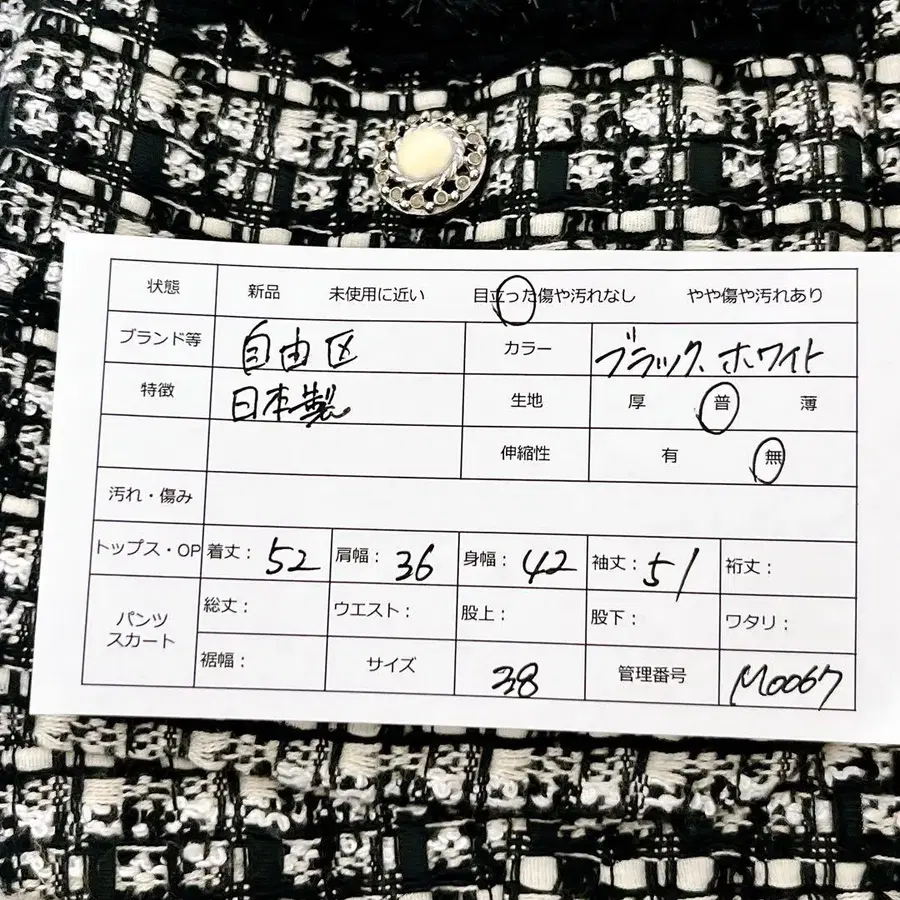 状態 新品 未使用に近い 目立った傷や汚れなし やや傷や汚れあり
ブランド等 自由区 カラー ブラック、ホワイト
特徴 日本製 生地 厚 普 薄
伸縮性 有 無
汚れ・傷み
トップス・OP 着丈: 52 肩幅: 36 身幅: 42 袖丈: 51 裄丈:
パンツ スカート 総丈: ウエスト: 股上: 股下: ワタリ:
裾幅: サイズ 38 管理番号 M0067